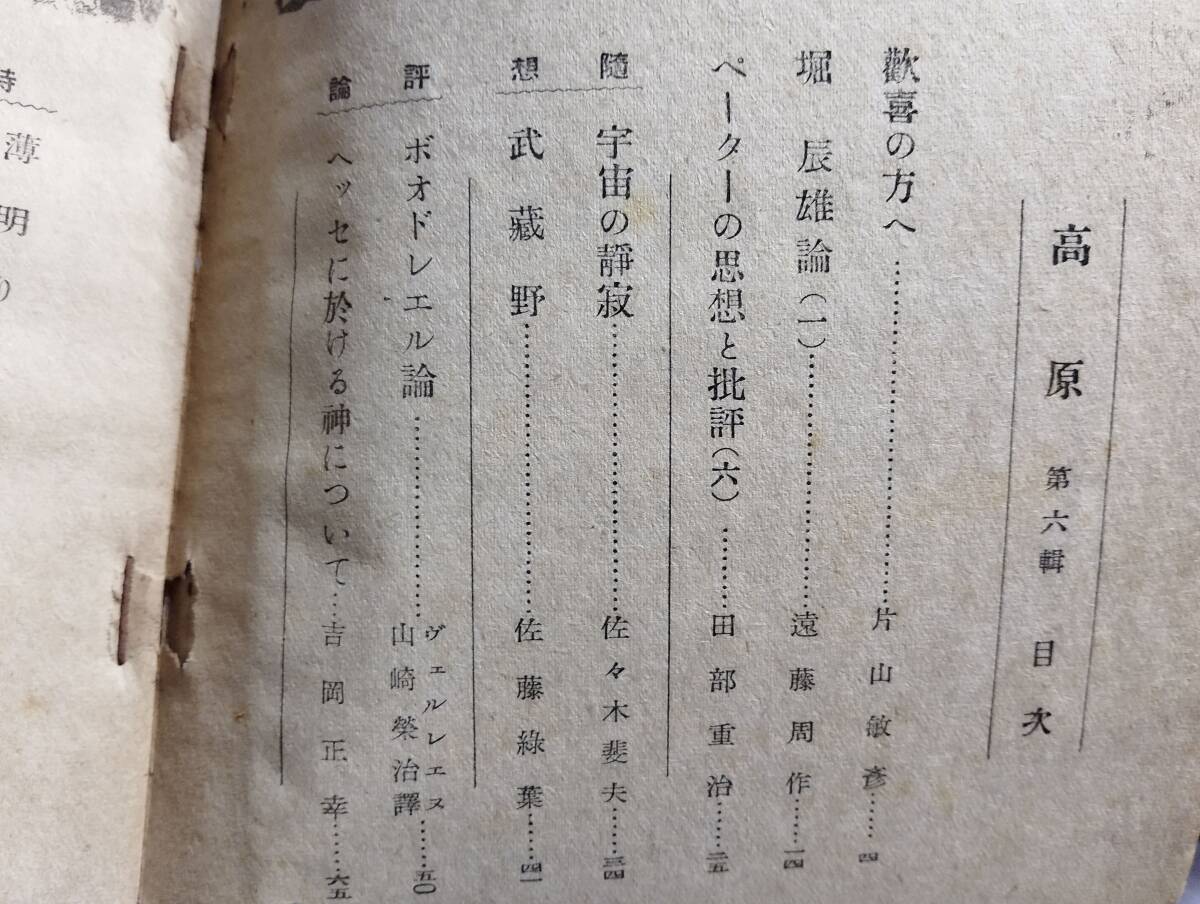 高原 第六輯 目次
歡喜の方へ……片山敏彦……四
堀辰雄論(一)……遠藤周作……一四
ペーターの思想と批評(六)……田部重治……二五
隨想
宇宙の靜寂……佐々木斐夫……三四
武藏野……佐藤綠葉……四一
評論
ボオドレエル論……ヴェルレエヌ 山崎榮治譯……五〇
ヘッセに於ける神について……吉岡正幸……六五
詩
薄明